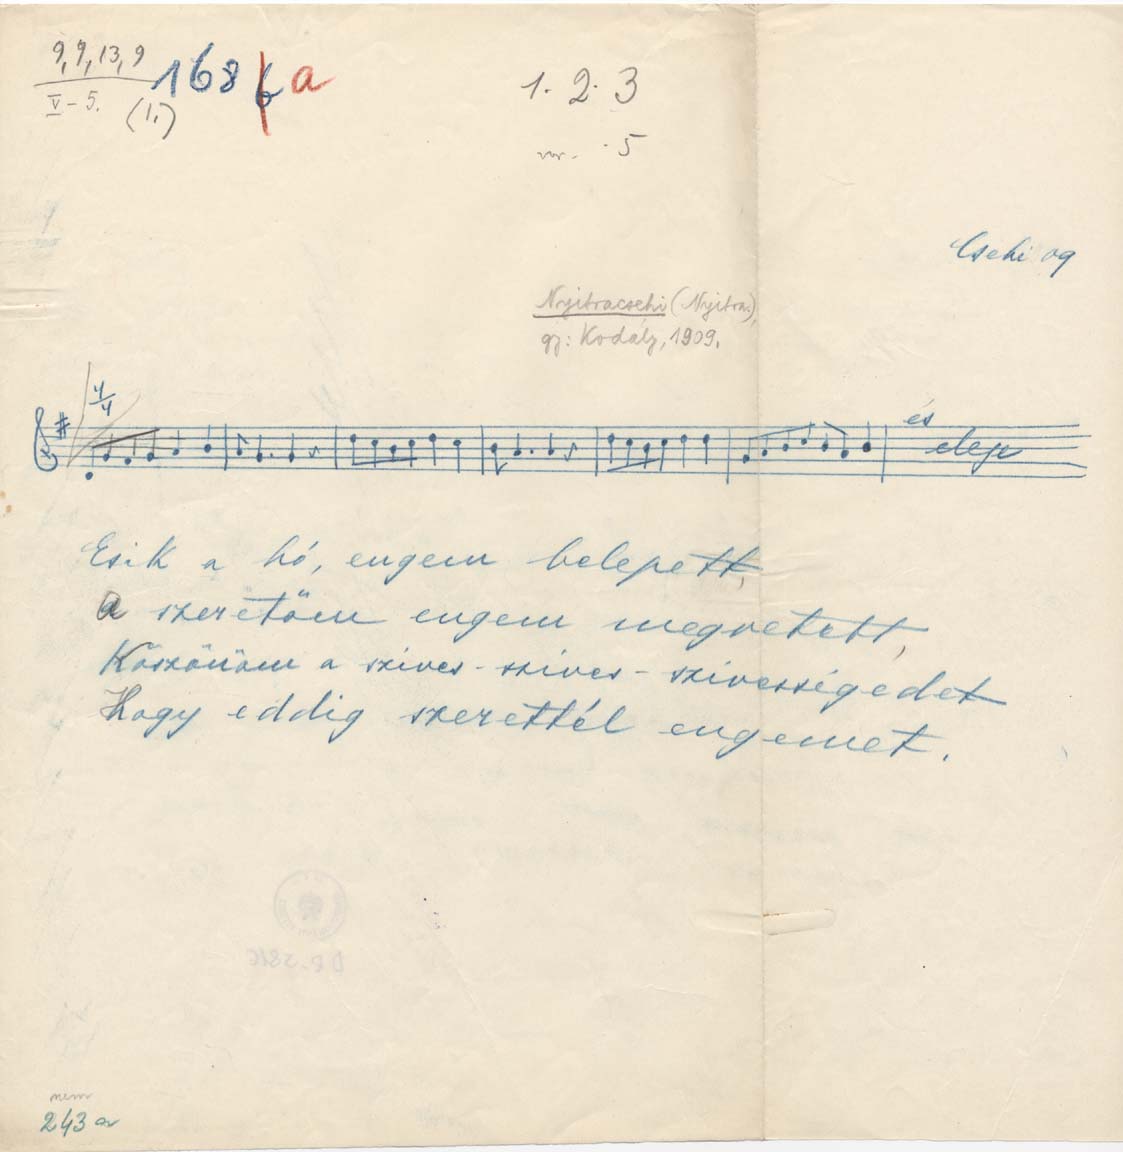 9, 9, 13, 9
V - 5.
(1.)
168 6 a
1. 2. 3
5
Csehi 09
Nyitracsehi (Nyitra),
gy: Kodály, 1909.
4/4
és
eleje
Esik a hó, engem belepett,
a szeretöm engem megvetett,
Köszönöm a szives-szives-szivességedet
Hogy eddig szerettél engemet.
nem
243 a